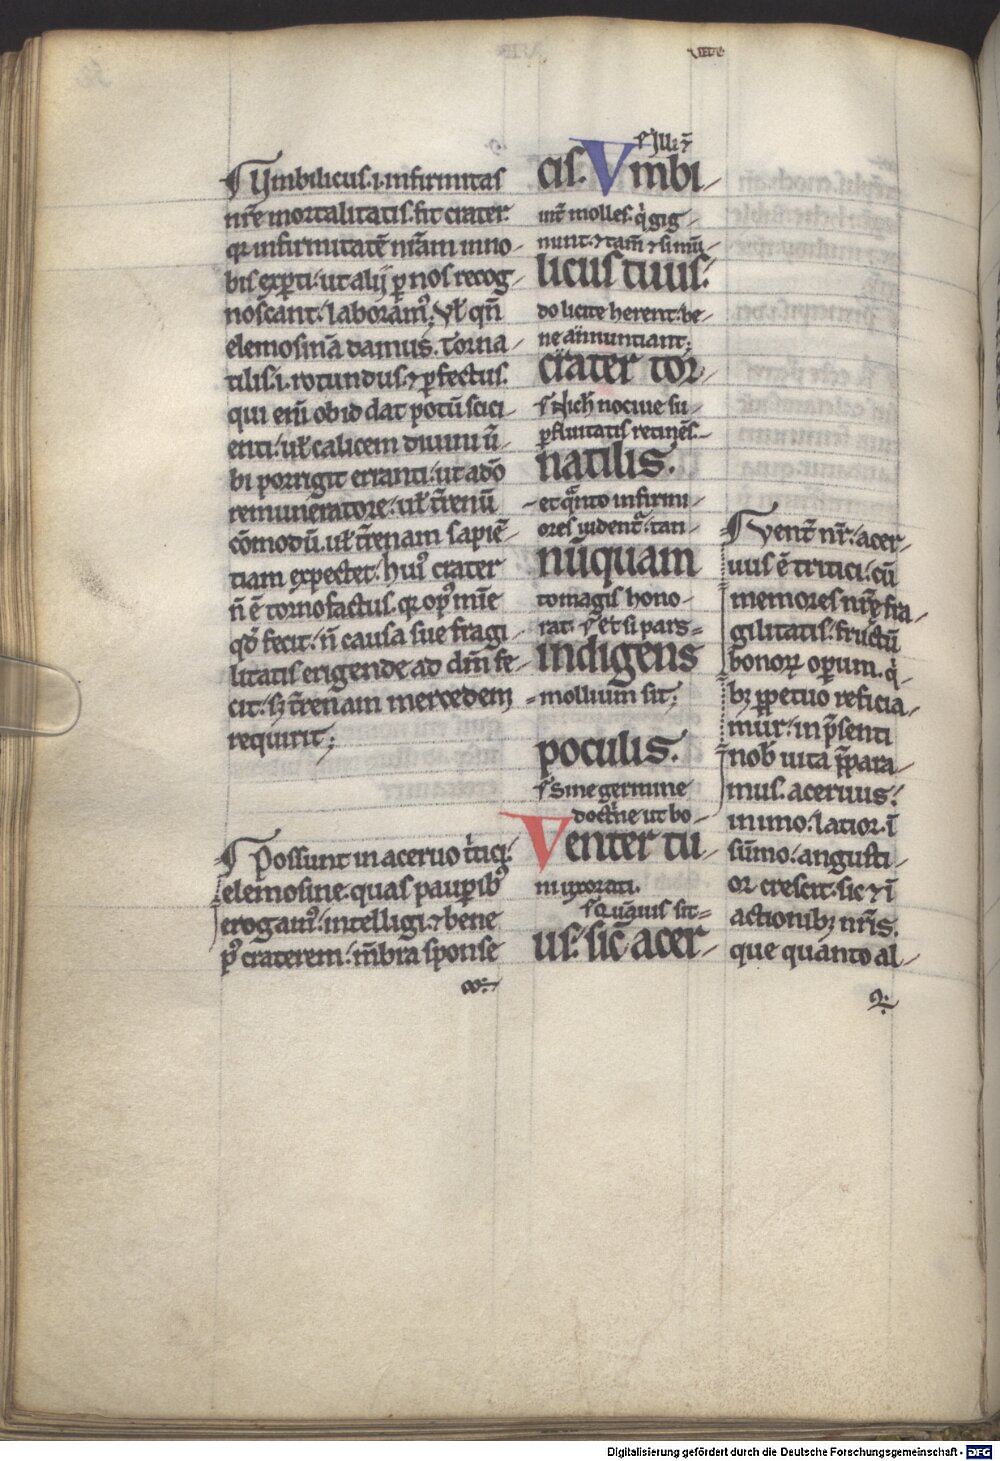 Vmbilicus .i. infirmitas
nr̄e mortalitatis. fit crater.
qr infirmitatē nr̄am in no-
bis expti: ut alij p nos recog-
noscant: laboram᷒; vl̄ qn̄
elemosinā damus. Torna-
tilis .i. rotundus. ⁊ pfectus.
qui eni᷒ ob id dat potū sici-
enti: ul̄ calicem diuini ū-
bi porrigit erranti: ut a dō
remuneratore: ul̄ t̄renū
cōmodū. ul̄ t̄renam sapiē-
tiam expectet: hui᷒ crater
n̄ ē torno factus. qr op᷒ mīe
qd̄ fecit: n̄ causa sue fragi-
litatis erigende ad dm̄ fe-
cit: s; t̄renam mercedem
requirit;
Possunt in aceruo t̄tici:
elemosine quas paupib᷒
erogam᷒: intelligi. ⁊ bene
p᷒ craterem: m̄bra sponse
Illi ⁊
cis. Vmbi-
int̄ molles. q̇ gig-
nunt. ⁊ tam̄ ⁊ si mū-
licus tuus:
do licite herent: be-
ne annuntiant;
crater tor-
Nich̄ nociue su-
pfluitatis retinēs.
natilis.
et q̄nto infirmi-
ores uident᷑: tan-
nūquam
to magis hono-
rat᷑. et si pars
indigens
mollium sit;
poculis.
Sine germine
doctrine ut bo-
Venter tu-
ni uxorati.
Quāuis sit
us: sic̄ acer-
Vent̄ nr̄: acer-
uus ē tritici: cū
memores nr̄e fra-
gilitatis: fructū
bonoꝝ opum. q̇-
bꝫ ppetuo reficia-
mur: in p̄senti
nob̄ uita p̄para-
mus. aceruus:
in imo: latior. ī
sūmo: angusti-
or crescit: sic ⁊ ī
actionibꝫ nr̄is.
que quanto al-
Digitalisierung gefördert durch die Deutsche Forschungsgemeinschaft - DFG